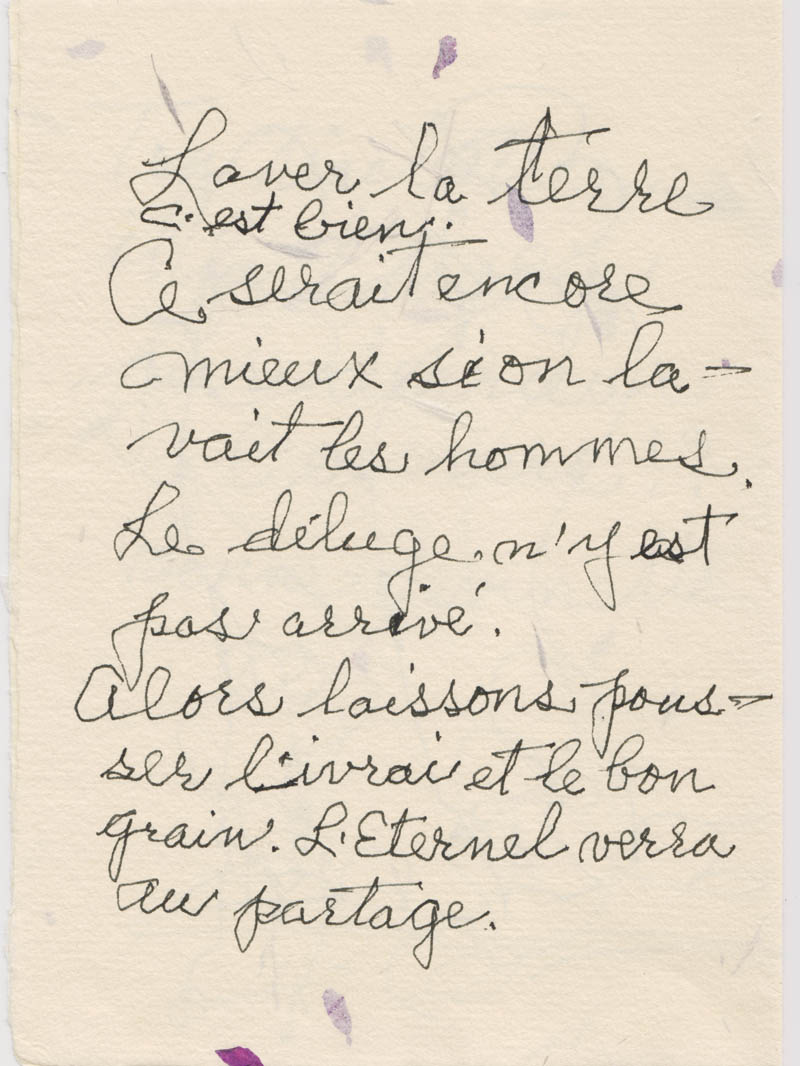 Laver la terre
c'est bien.
Ce serait encore
mieux si on la-
vait les hommes.
Le déluge n'y est
pas arrivé.
Alors laissons pous-
ser l'ivrai et le bon
grain. L'Eternel verra
au partage.